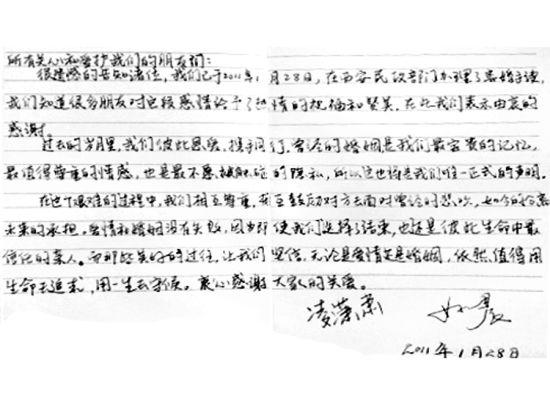 所有关心和爱护我们的朋友们:
很遗憾的告知诸位,我们已于2011年1月28日,在西安民政部门办理了离婚手续,
我们知道很多朋友对这段感情给予了热情的祝福和赞美,在此我们表示由衷的
感谢。
过去的岁月里,我们彼此恩爱,携手同行,曾经的婚姻是我们最宝贵的记忆,
最值得尊重的情感,也是最不愿被触碰的隐私,所以这也将是我们唯一正式的声明。
在这个艰难的过程中,我们相互尊重,相互鼓励对方去面对曾经的悲欢、如今的分离
未来的承担。爱情和婚姻没有失败,因为即使我们选择了结束,也还是彼此生命中最
信任的亲人。而那些美好的过往,让我们坚信,无论是爱情还是婚姻,依然值得用
生命去追求,用一生去守候。衷心感谢大家的关爱。
凌潇肃 姚晨
2011年1月28日